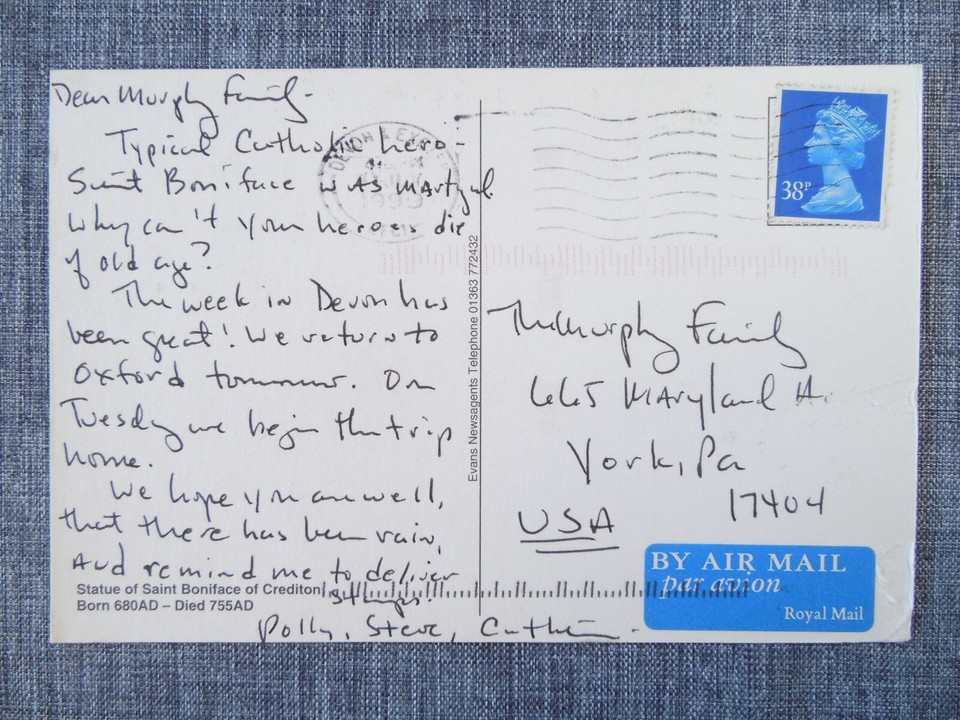 Dear Murphy Family-
Typical Catholic hero-
Saint Boniface was martyred.
Why can't your heroes die
of old age?
The week in Devon has
been great! We return to
Oxford tomorrow. On
Tuesday we begin the trip
home.
We hope you are well,
that there has been rain,
And remind me to deliver
3 things.
Polly, Steve,
Statue of Saint Boniface of Crediton
Born 680AD – Died 755AD
Evans Newsagents Telephone 01363 772432
DEVON & EXETER
1999
38P
The Murphy Family
665 Maryland A.
York, Pa
17404
USA
BY AIR MAIL
par avion
Royal Mail